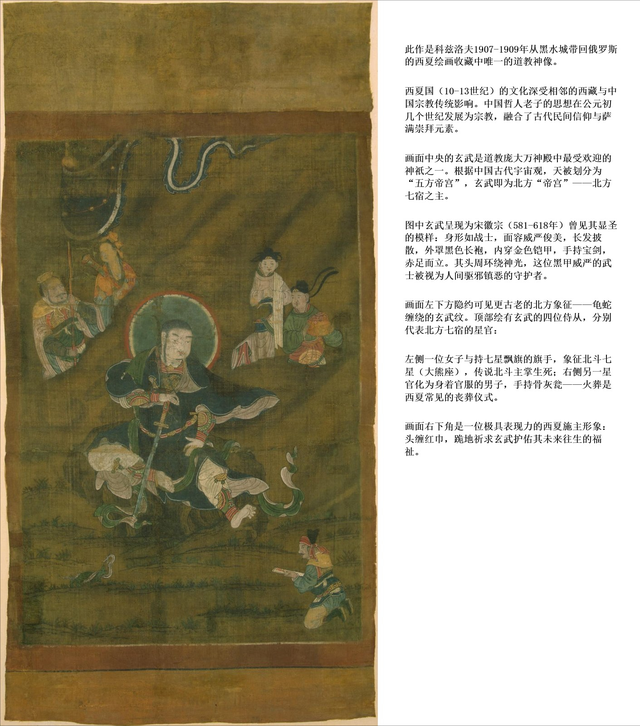 此作是科兹洛夫1907-1909年从黑水城带回俄罗斯
的西夏绘画收藏中唯一的道教神像。
西夏国（10-13世纪）的文化深受相邻的西藏与中
国宗教传统影响。中国哲人老子的思想在公元初
几个世纪发展为宗教，融合了古代民间信仰与萨
满崇拜元素。
画面中央的玄武是道教庞大万神殿中最受欢迎的
神祇之一。根据中国古代宇宙观，天被划分为
“五方帝宫”，玄武即为北方“帝宫”——北方
七宿之主。
图中玄武呈现为宋徽宗（581-618年）曾见其显圣
的模样：身形如战士，面容威严俊美，长发披
散，外罩黑色长袍，内穿金色铠甲，手持宝剑，
赤足而立。其头周环绕神光，这位黑甲威严的武
士被视为人间驱邪镇恶的守护者。
画面左下方隐约可见更古老的北方象征——龟蛇
缠绕的玄武纹。顶部绘有玄武的四位侍从，分别
代表北方七宿的星官；
左侧一位女子与持七星飘旗的旗手，象征北斗七
星（大熊座），传说北斗主掌生死；右侧另一星
官化为身着官服的男子，手持骨灰瓮——火葬是
西夏常见的丧葬仪式。
画面右下角是一位极具表现力的西夏施主形象：
头缠红巾，跪地祈求玄武护佑其未来往生的福
祉。